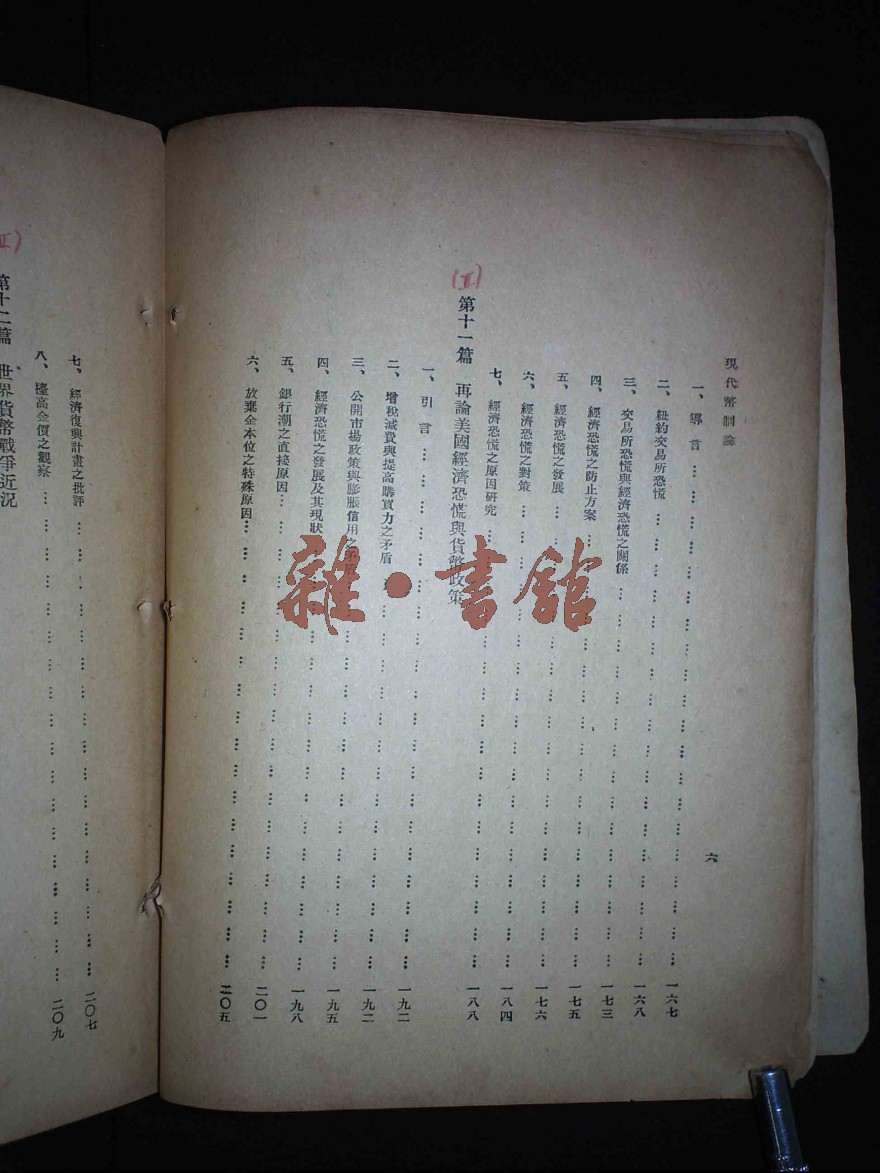 現代幣制論
六
一、導言 … … … 一六七
二、紐約交易所恐慌 … … … 一六八
三、交易所恐慌與經濟恐慌之關係 … … … 一七三
四、經濟恐慌之防止方案 … … … 一七五
五、經濟恐慌之發展 … … … 一七六
六、經濟恐慌之對策 … … … 一八四
七、經濟恐慌之原因研究 … … … 一八八
(II)
第十一篇 再論美國經濟恐慌與貨幣政策
一、引言 … … … 一九二
二、增稅減費與提高購買力之矛盾 … … … 一九二
三、公開市場政策與膨脹信用之 … … … 一九五
四、經濟恐慌之發展及其現狀 … … … 一九八
五、銀行潮之直接原因 … … … 二〇一
六、放棄金本位之特殊原因 … … … 二〇五
七、經濟復興計畫之批評 … … … 二〇七
八、擡高金價之觀察 … … … 二〇九
第十二篇 世界貨幣戰爭近況
雜·書館